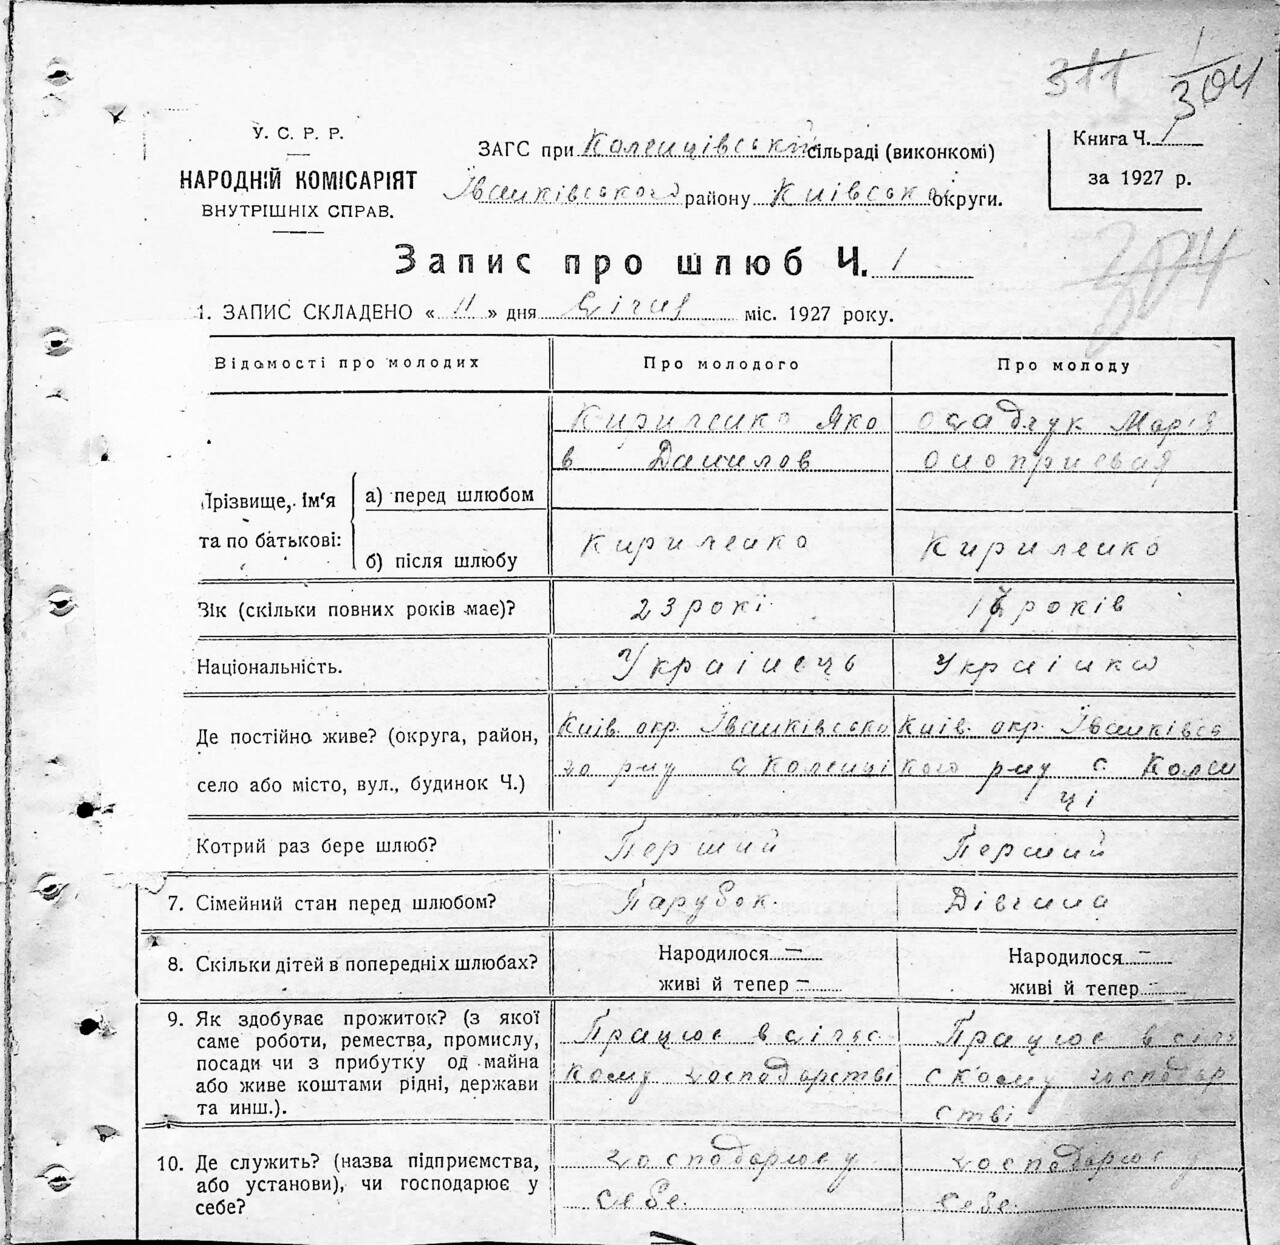 311 1/304
У. С. Р. Р.
НАРОДНІЙ КОМІСАРІЯТ
ВНУТРІШНІХ СПРАВ.
ЗАГС при Коленцівській сільраді (виконкомі)
Іванківського району Київськ округи.
Книга Ч. 1
за 1927 р.
304
Запис про шлюб Ч. 1
1. ЗАПИС СКЛАДЕНО « 11 » дня Січня міс. 1927 року.
Відомості про молодих Про молодого Про молоду
Кириленко Яко Осадчук Марія
в Данилов Оноприевая
Прізвище, ім'я а) перед шлюбом
та по батькові: б) після шлюбу Кириленко Кириленко
Вік (скільки повних років має)? 23 рокі років
Національність. Украінець Украінка
Де постійно живе? (округа, район, Київ. окр. Іванківсько Київ. окр. Іванківсь
село або місто, вул., будинок Ч.) го р-ну с Коленці кого р-ну с Колен
ці
Котрий раз бере шлюб? Перший Перший
7. Сімейний стан перед шлюбом? Парубок. Дівчина
8. Скільки дітей в попередніх шлюбах? Народилося — Народилося —
живі й тепер — живі й тепер —
9. Як здобуває прожиток? (з якої
саме роботи, ремества, промислу, Працює в сільс Працює в сіль
посади чи з прибутку од майна
або живе коштами рідні, держави кому господарстві ському господар
та инш.). стві
10. Де служить? (назва підприємства, господарює у господарює у
або установи), чи господарює у
себе? себе. себе.